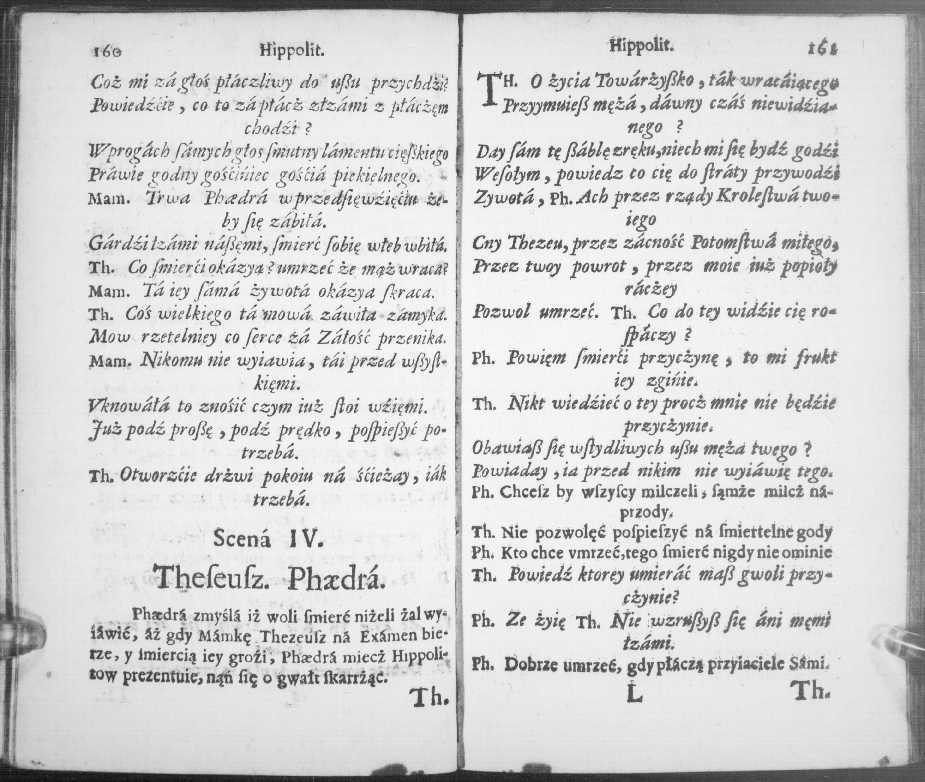 160 Hippolit.
Coż mi zá głoś płáczliwy do uſſu przychdźi?
Powiedźćie, co to zá płácż złzámi z płáczęm
chodźi?
W progách ſámych głos ſmutny lámentu cięſżkiego
Práwie godny gośćiniec gośćiá piekielnego.
Mam. Trwa Phædrá w przedſięwźięćiu że-
by ſię zábiłá.
Gárdźi łzámi náßęmi, śmierć ſobię włeb wbiłá.
Th. Co ſmierći okázya? umrzeć że mąż wraca?
Mam. Tá iey ſámá żywotá okázya ſkraca.
Th. Coś wielkiego tá mowá záwiła zámyka.
Mow rzetelniey co ſerce zá Záłość przenika.
Mam. Nikomu nie wyiawia, tái przed wſſyſt-
kięmi.
Vknowáłá to znośić czym iuż ſtoi wźięmi.
Już podź proßę, podź prędko, poſpieſſyć po-
trzebá.
Th. Otworzćie drżwi pokoiu ná śćieżay, iák
trzebá.
Scená IV.
Theſeuſz. Phædrá.
Phædrá zmyślá iż woli ſmierć niżeli żal wy-
iáwić, áż gdy Mámkę Thezeuſz ná Exámen bie-
rze, y śmiercią iey groźi, Phædrá miecż Hippoli-
tow prezentuie, nąń ſię o gwałt ſkarrżąc.
Th.
Hippolit. 161
TH. O życia Towárżyßko, ták wracáiącego
Przyymuieß mężá, dáwny czáś niewidźia-
nego?
Day ſám tę ßáblę zręku, niech mi ſię bydź godźi
Weſołym, powiedz co cię do ſtráty przywodźi
Zywotá, Ph. Ach przez rządy Kroleſtwá two-
iego
Cny Thezeu, przez zácność Potomſtwá miłego,
Przez twoy powrot, przez moie iuż popioły
ráczey
Pozwol umrzeć. Th. Co do tey widźie cię ro-
ſpáczy?
Ph. Powięm ſmierći przyczynę, to mi frukt
iey zginie.
Th. Nikt wiedźieć o tey procż mnie nie będźie
przyczynie.
Obawiaß ſię wſtydliwych uſſu męża twego?
Powiaday, ia przed nikim nie wyiáwię tego.
Ph. Chceſz by wſzyſcy milczeli, ſąmże milcż ná-
przody.
Th. Nie pozwolęć poſpieſzyć ná ſmiertelne gody
Ph. Kto chce vmrzeć, tego ſmierć nigdy nie ominie
Th. Powiedź ktorey umieráć maß gwoli przy-
cżynie?
Ph. Ze żyię Th. Nie wzrußyß ſię áni męmi
łzámi.
Ph. Dobrze umrzeć, gdy płáczą przyiaciele Sámi.
L Th.